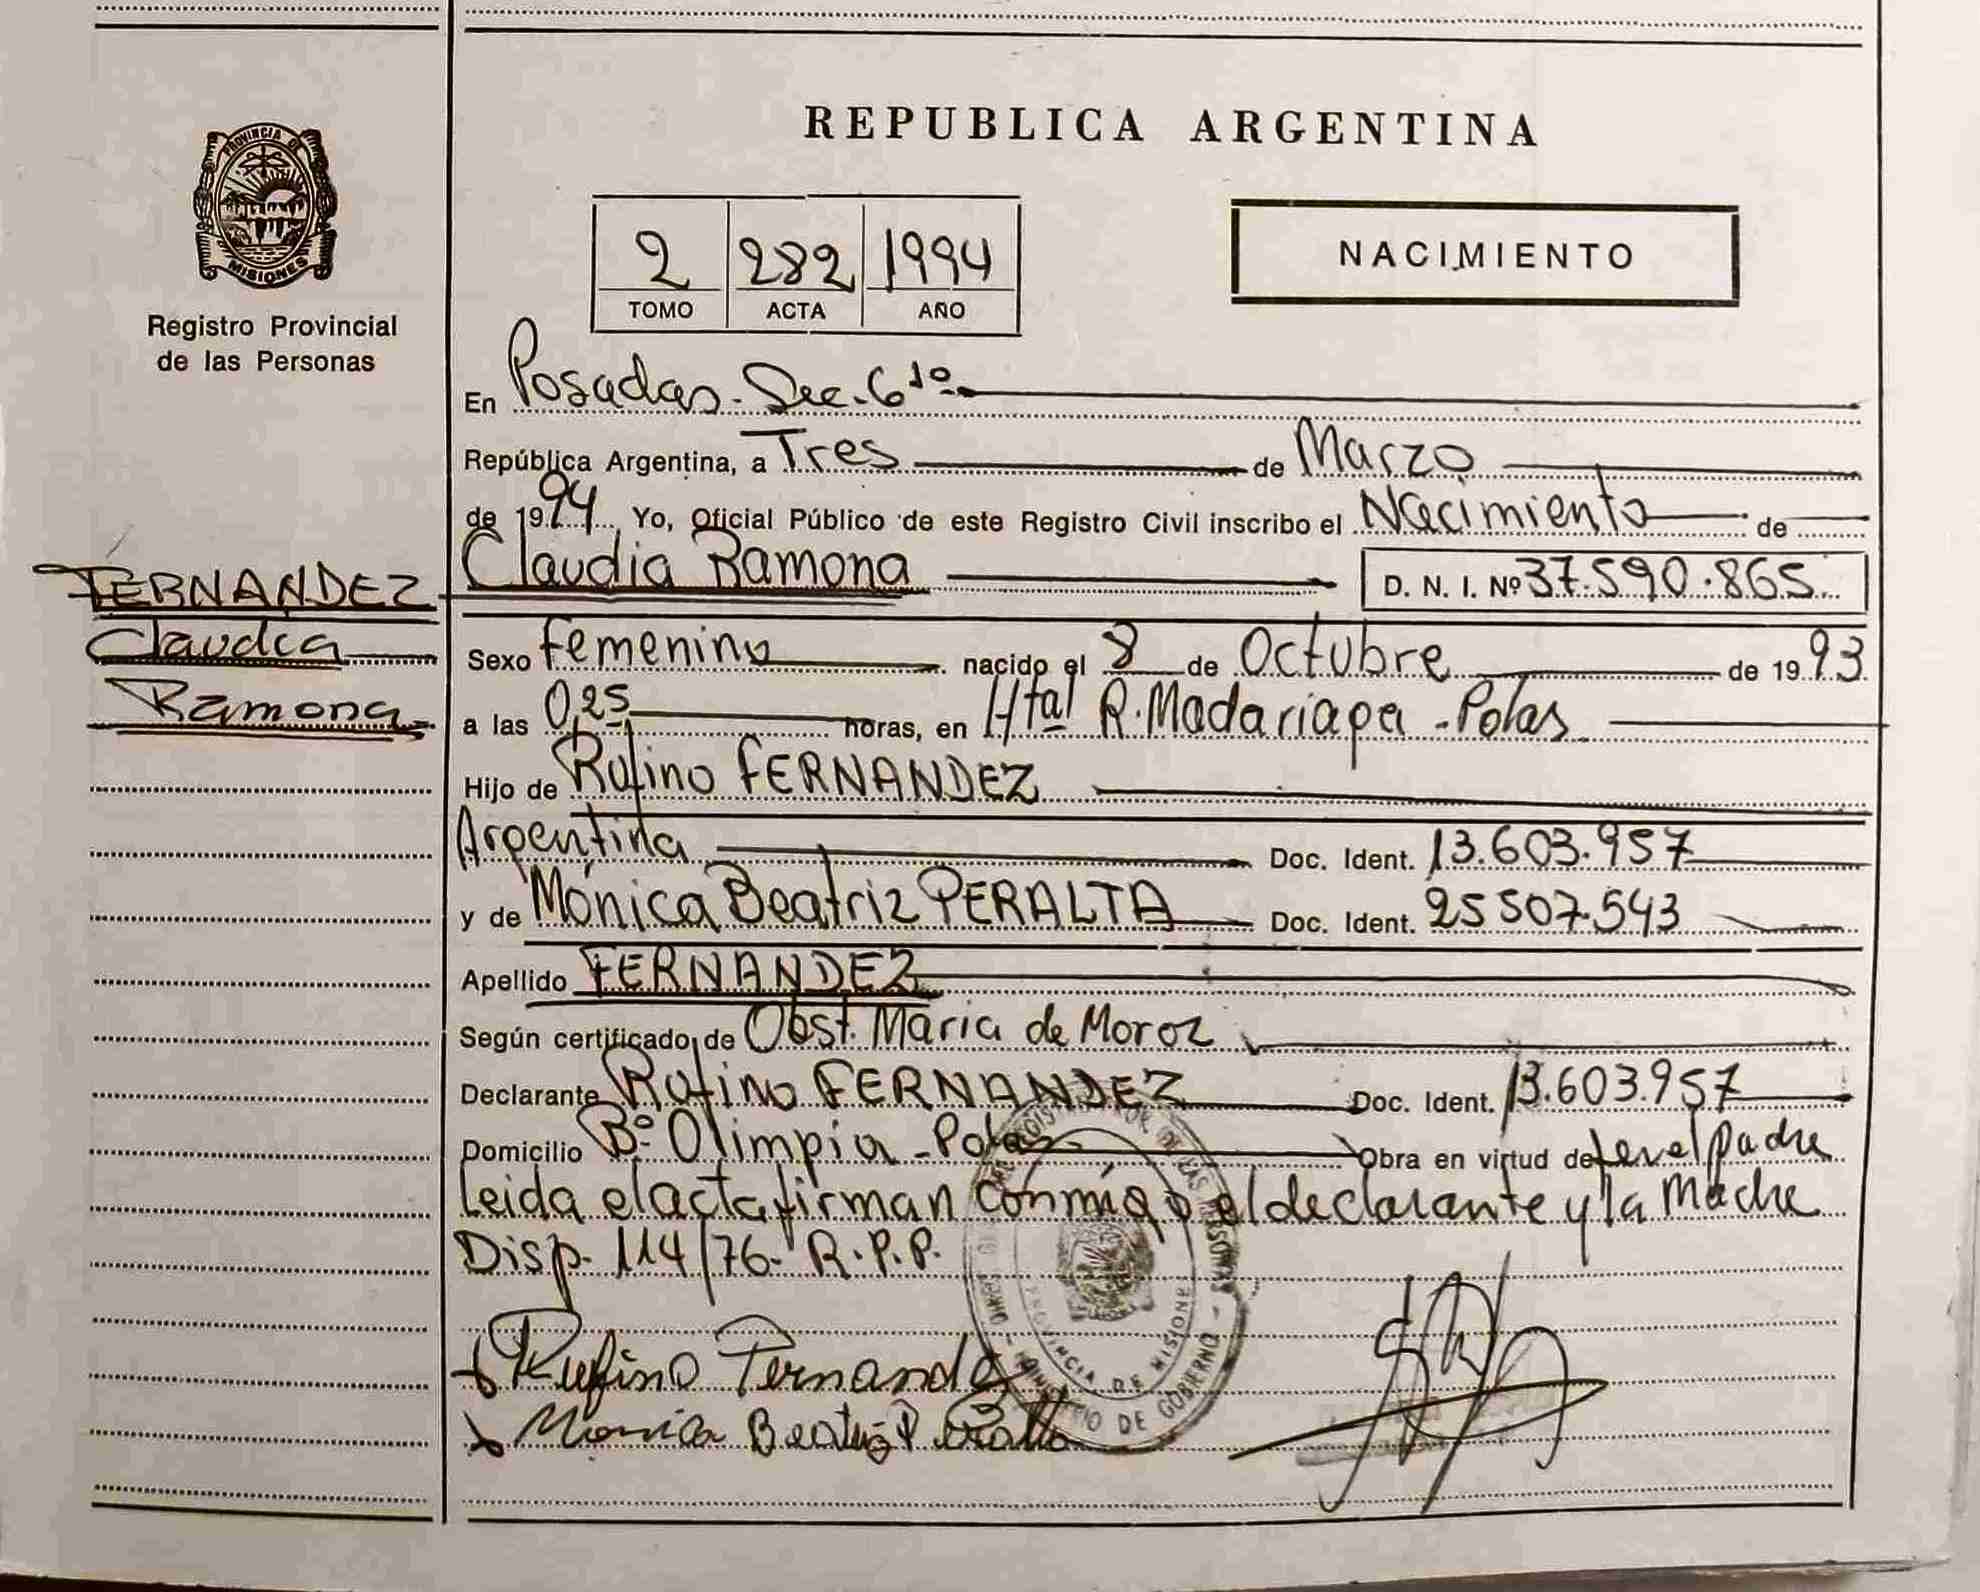 REPUBLICA ARGENTINA
PROVINCIA DE
MISIONES
Registro Provincial
de las Personas
2 282 1994
TOMO ACTA AÑO
NACIMIENTO
En Posadas - Sec. 6ta
República Argentina, a Tres de Marzo
de 1994 Yo, Oficial Público de este Registro Civil inscribo el Nacimiento de
FERNANDEZ
Claudia
Ramona
Claudia Ramona D. N. I. Nº 37.590.865
Sexo femenino nacido el 8 de Octubre de 1993
a las 0,25 horas, en Htal R. Madariaga - Pdas
Hijo de Rufino FERNANDEZ
Argentina Doc. Ident. 13.603.957
y de Mónica Beatriz PERALTA Doc. Ident. 25507.543
Apellido FERNANDEZ
Según certificado de Obst. Maria de Moroz
Declarante Rufino FERNANDEZ Doc. Ident. 13.603.957
Domicilio Bº Olimpia - Pdas Obra en virtud de ser el padre
Leida el acta firman conmigo el declarante y la Madre
Disp. 114/76 - R.P.P.
PROVINCIA DE MISIONES
MINISTERIO DE GOBIERNO
Rufino Fernande
Monica Beatriz P